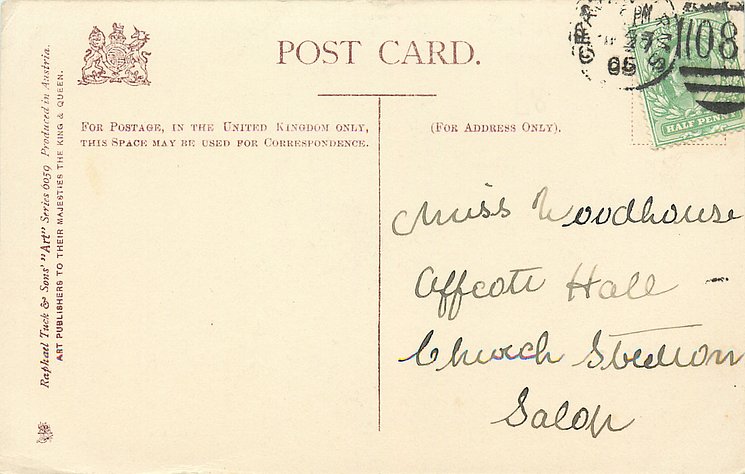 POST CARD.
FOR POSTAGE, IN THE UNITED KINGDOM ONLY,
THIS SPACE MAY BE USED FOR CORRESPONDENCE.
(FOR ADDRESS ONLY).
Raphael Tuck & Sons' "Art" Series 6059 Produced in Austria.
ART PUBLISHERS TO THEIR MAJESTIES THE KING & QUEEN.
PM
27
05
108
HALF PENNY
Miss Woodhouse
Affcott Hall
Church Stretton
Salop